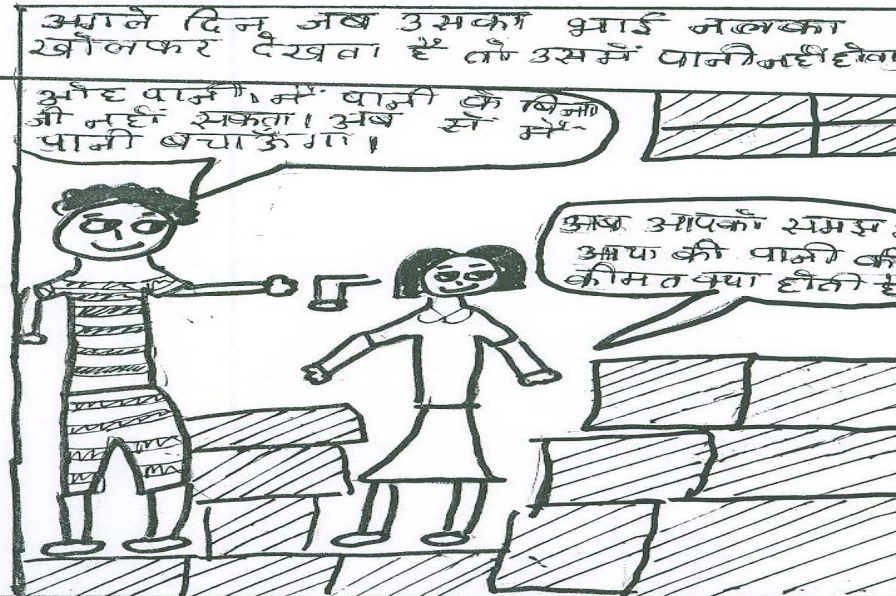 अगले दिन जब उसका भाई नलका
खोलकर देखता है तो उसमें पानी नहीं होता
ओह पानी। मैं पानी के बिना
जी नहीं सकता। अब से मैं
पानी बचाऊँगा।
अब आपको समझ
आया की पानी की
कीमत क्या होती है